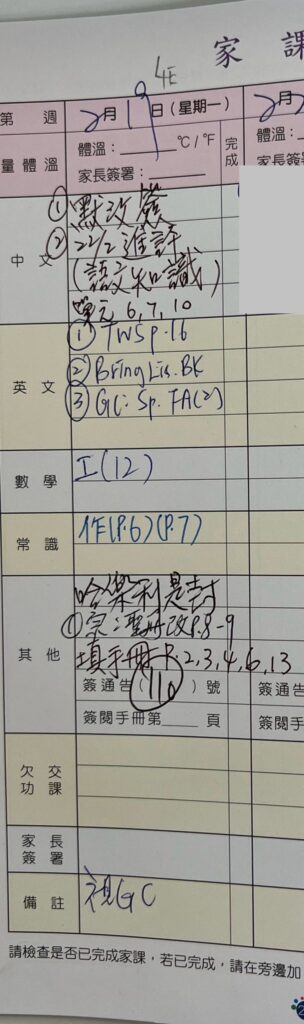 家 課
4E
第 週
2月19日(星期一)
2月2
量體溫
體溫：
℃/℉
家長簽署：
完成
體溫：
家長簽
中文
①默改簽
②22/2進評
(語文知識)
單元6,7,10
英文
①TWS p.16
②Bring Lis. BK
③GC: Sp. FA(2)
數學
工(12)
常識
作(P.6)(P.7)
其他
利是封
填手冊 P.2,3,4,6,13
簽通告(110)號
簽通告
簽閱手冊第 頁
簽閱手
欠交功課
家長簽署
備註
視GC
請檢查是否已完成家課，若已完成，請在旁邊加